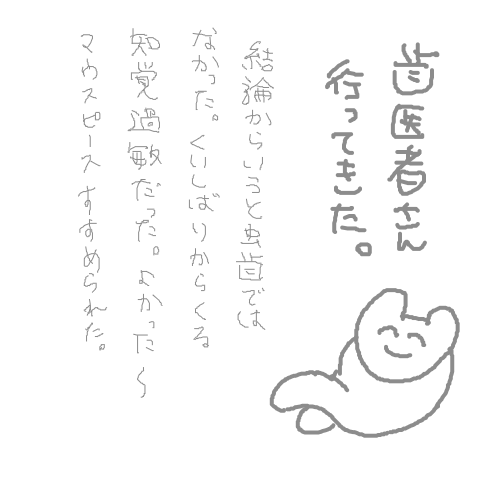 歯医者さん
行ってきた。
結論からいうと虫歯では
なかった。くいしばりからくる
知覚過敏だった。よかった〜
マウスピースすすめられた。